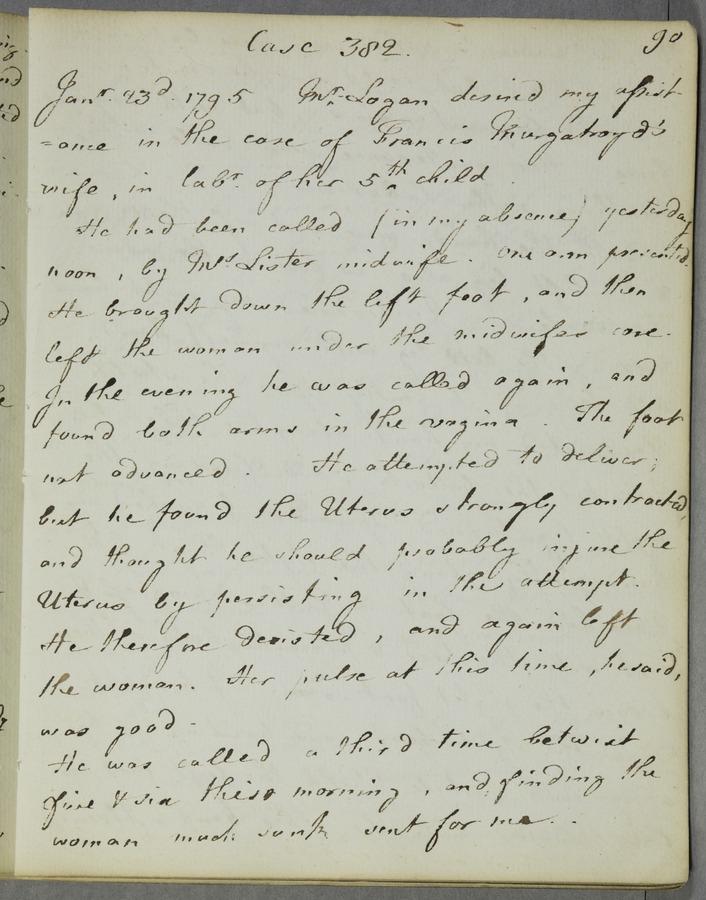 Case 382.
90
Janr. 23d. 1795 Mr. Logan desired my assist
=ance in the case of Francis Murgatroyd's
wife, in labr. of her 5th child
He had been called (in my absence) yesterday
noon, by Mrs Lister midwife. One arm presented.
He brought down the left foot, and then
left the woman under the midwifes care.
In the evening he was called again, and
found both arms in the vagina. The foot
not advanced. He attempted to deliver;
but he found the Uterus strongly contracted,
and thought he should probably injure the
Uterus by persisting in the attempt.
He therefore desisted, and again left
the woman. Her pulse at this time, he said,
was good.
He was called a third time betwixt
five & six this morning, and finding the
woman much sunk sent for me.